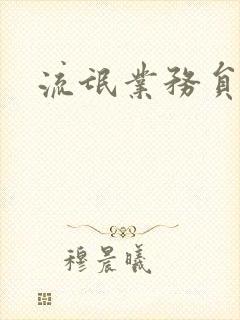 流氓業務員
穆晨曦